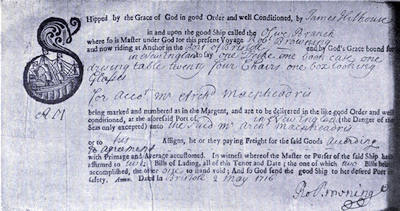 Shipped by the Grace of God in good Order and well Conditioned, by James Hilhouse
in and upon the good Ship called the Olive Branch
where so is Master under God for this present Voyage Rob Browning
and now riding at Anchor in the Port of Bristoll and by God's Grace bound for
in New England to say one one book case one
drawing table twenty four Chairs one box Looking
Glasses
for accot mr Archd macpheadris
A M being marked and numbred as in the Margent, and are to be delivered in the like good Order and well
conditioned, at the aforesaid Port of in New England (the Danger of the
Seas only excepted) unto the said mr Archd macpheadris
or to his Assigns, he or they paying Freight for the said Goods according
to agreement
with Primage and Average accustomed. In witness whereof the Master or Purser of the said Ship hath
affirmed to two Bills of Lading, all of this Tenor and Date; the one of which two Bills being
accomplished, the other one to stand void; And so God send the good Ship to her desired Port in
safety. Amen. Dated in Bristole 2 May 1716
Ro Browning